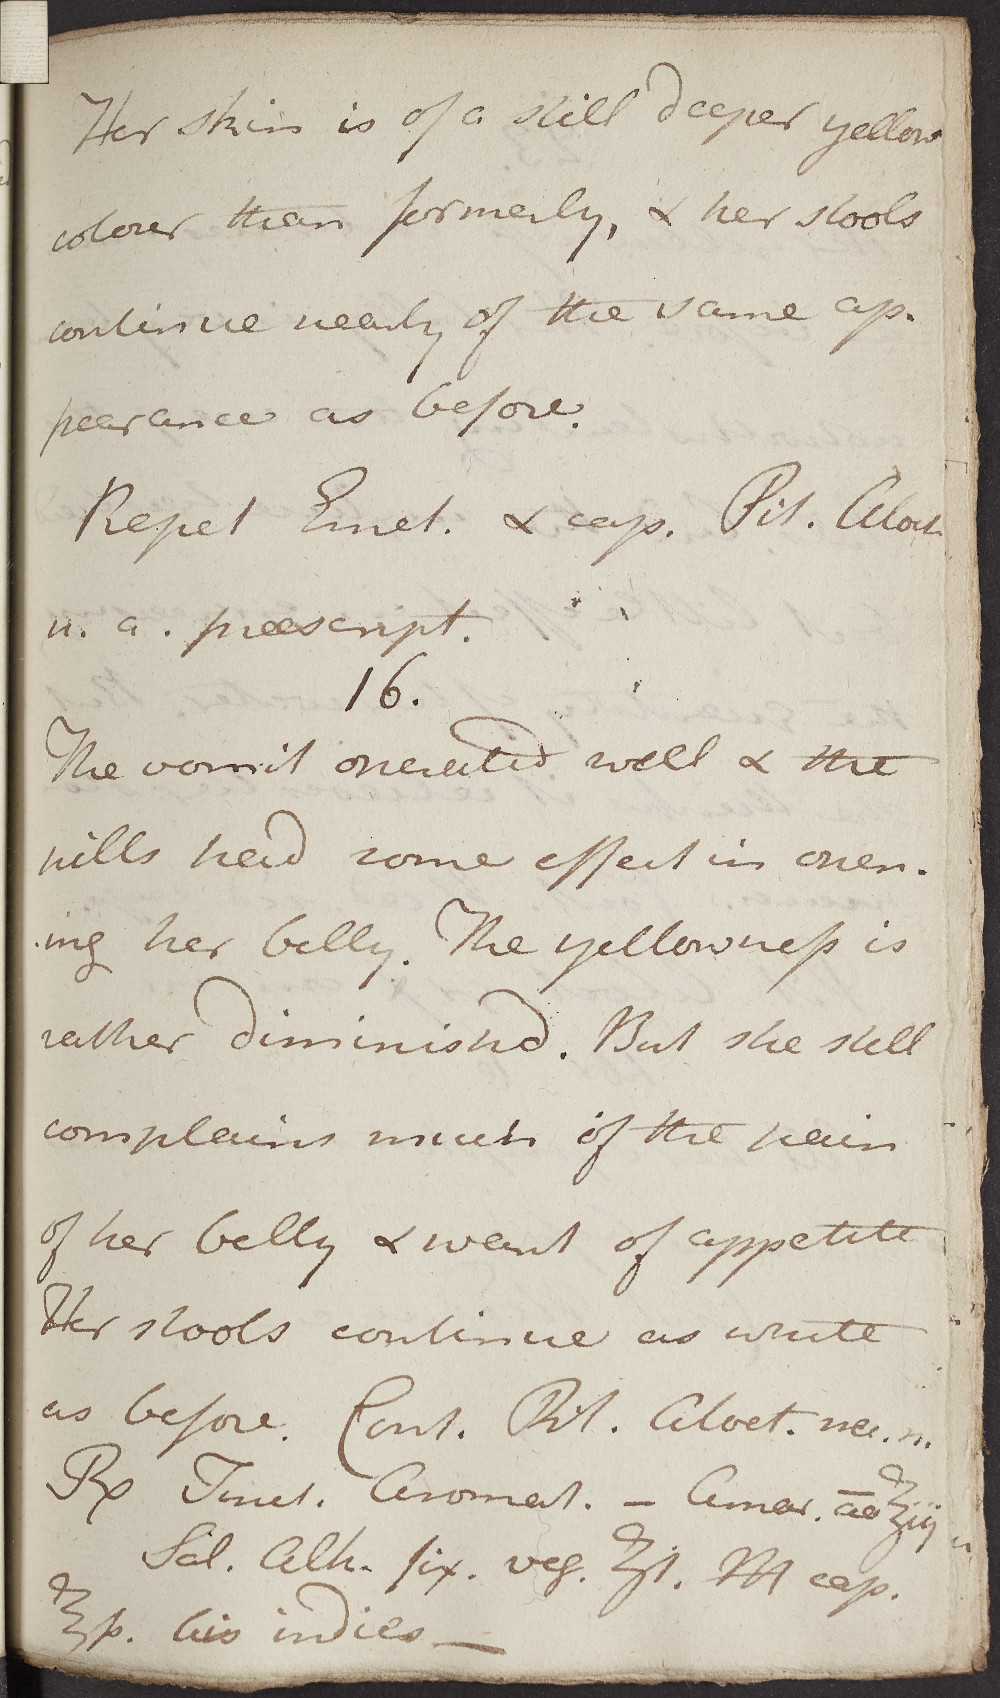 Her skin is of a still deeper yellow
colour than formerly, & her stools
continue nearly of the same ap-
pearance as before.
Repet Emet. & cap. Pil. Aloet.
u. a. præscript.
16.
The vomit operated well & the
pills had some effect in open-
ing her belly. The yellowness is
rather diminishd. But she still
complains much of the pain
of her belly & want of appetite
Her stools continue as white
as before. Cont. Pil. Aloet.
℞ Tinct. Aromat. — Amar. aa ℥iij
Sal. Alk. fix. veg. ʒi. M cap.
℥ß. bis indies —